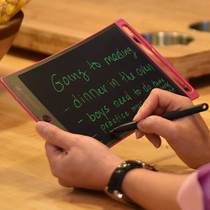 Going to meeting
- dinner in the oven
- boys need to do
practice